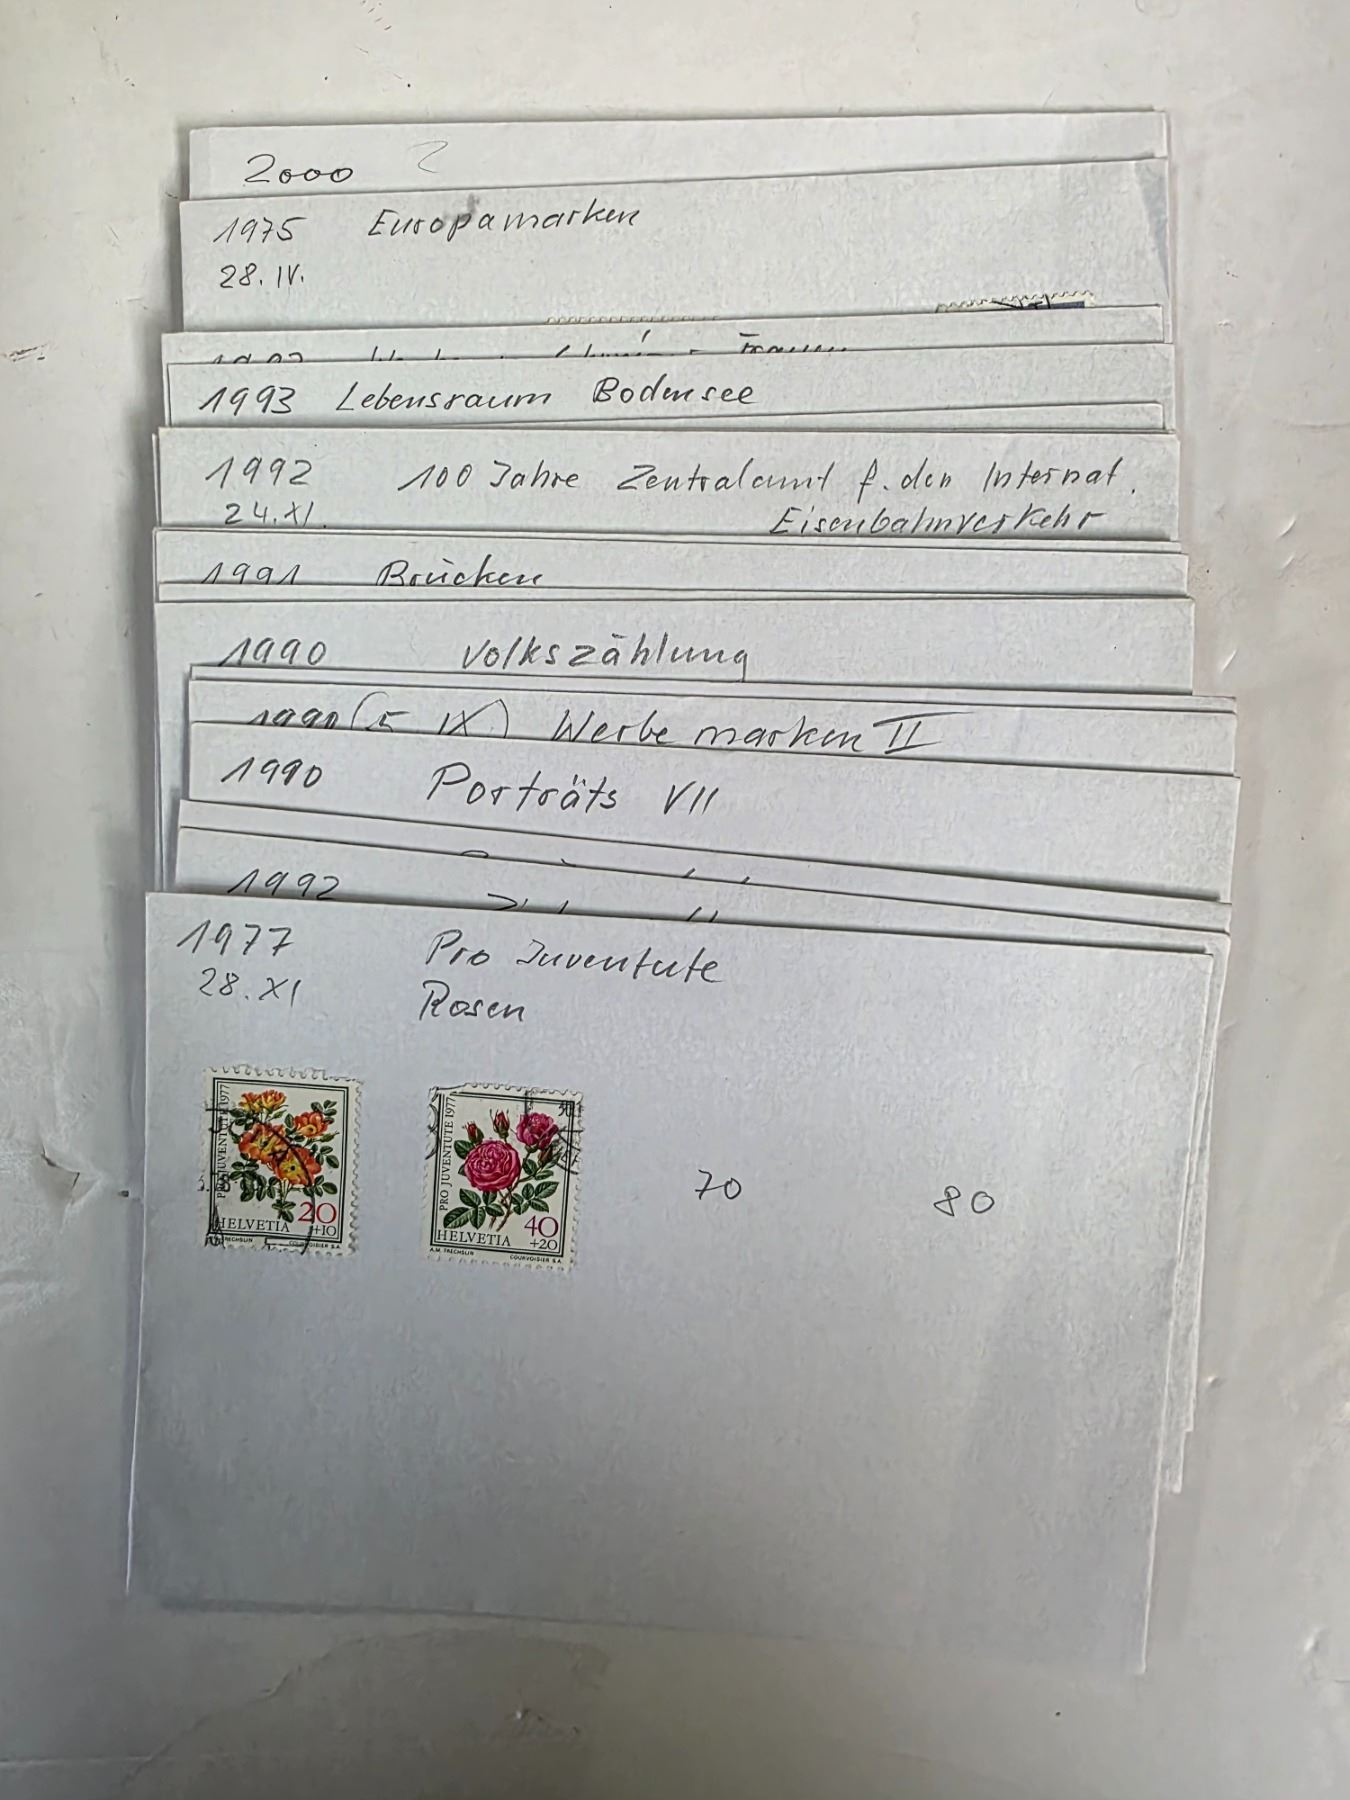 2000
1975 Europamarken
28. IV.
1993 Lebensraum Bodensee
1992 100 Jahre Zentralamt f. den Internat.
24. XI. Eisenbahnverkehr
1991 Brücken
1990 Volkszählung
1990 (5 IX) Werbemarken II
1990 Porträts VII
1992
1977 Pro Juventute
28. XI Rosen
PRO JUVENTUTE 1977
20
+10
HELVETIA
COURVOISIER S.A.
PRO JUVENTUTE 1977
40
+20
HELVETIA
A.M. TRECHSLIN COURVOISIER S.A.
70
80